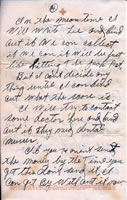 In the meantime I
will write her and find
out if we can collect
it. We can it will be just
like getting it the back pay
But I can't decide any
thing until I can find
out what the score is
I will try to contact
some doctor here and find
out if they need dental
nurses.
If you haven't sent
the money by the time you
get this don't send it. I
can get by without it now